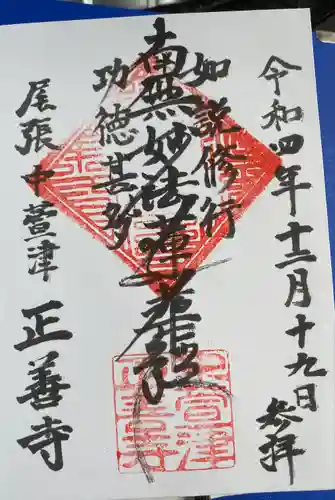 令和四年十二月十九日 参拝
如説修行
南無妙法蓮華経
功徳甚多
尾張中萱津 正善寺
中萱津
正善寺